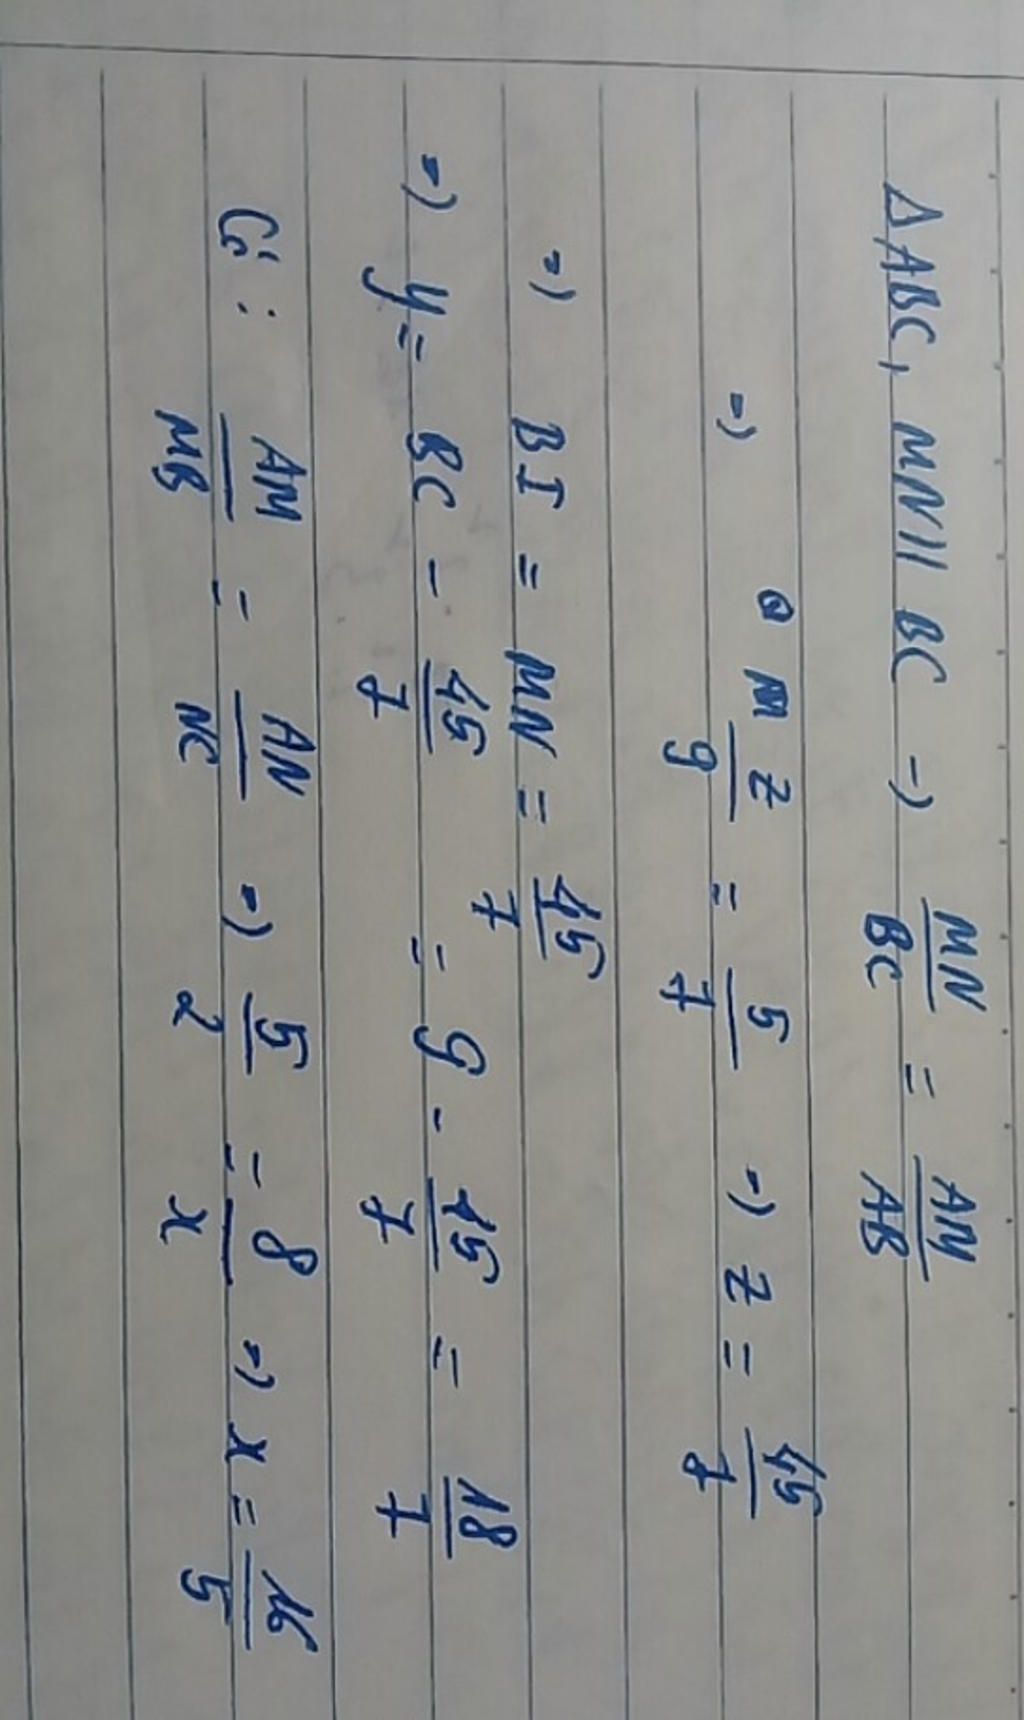 Δ ABC, MN // BC => MN/BC = AM/AB
=> z/9 = 5/7 => z = 45/7
=> BI = MN = 45/7
=> y = BC - 45/7 = 9 - 45/7 = 18/7
Có : AM/MB = AN/NC => 5/2 = 8/x => x = 16/5